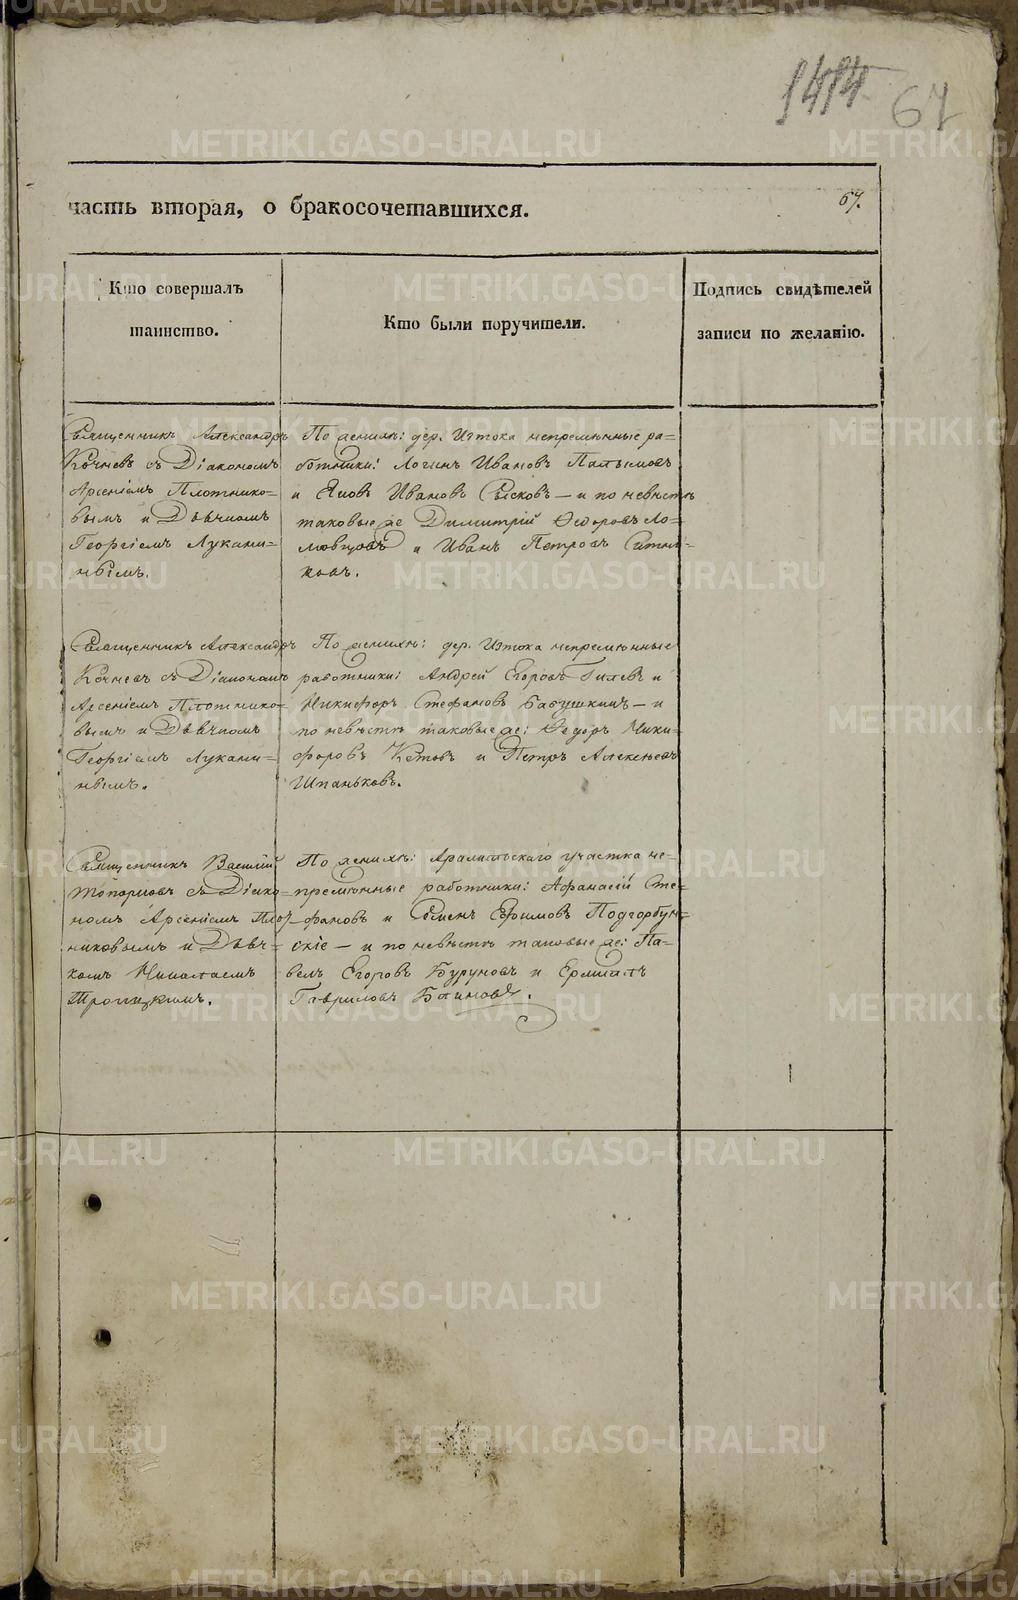 1414 67
часть вторая, о бракосочетавшихся.
67.
Кто совершалъ
таинство.
Кто были поручители.
Подпись свидѣтелей
записи по желанію.
Священникъ Александръ
Кочневъ съ Діакономъ
Арсеніемъ Плотнико-
вымъ и Дьячкомъ
Георгіемъ Лукани-
нымъ.
По женихѣ: дер. Изтока непремѣнные ра-
ботники: Логинъ Ивановъ
и Яковъ Ивановъ Сысковъ — и по невѣстѣ
таковые же Димитрій Ѳедоровъ Ло-
мовцовъ и Иванъ Петровъ Ситни-
ковъ.
Священникъ Александръ
Кочневъ съ Діакономъ
Арсеніемъ Плотнико-
вымъ и Дьячкомъ
Георгіемъ Лукани-
нымъ.
По женихѣ: дер. Изтока непремѣнные
работники: Андрей Егоровъ Гилевъ и
Никифоръ Стефановъ Бабушкинъ — и
по невѣстѣ таковые же: Ѳедоръ Ники-
форовъ Кетовъ и Петръ Алексѣевъ
Шпаньковъ.
Священникъ Василій
Топорковъ съ Діако-
номъ Арсеніемъ Плот-
никовымъ и Дьяч-
комъ Николаемъ
Троицкимъ.
По женихѣ: Арамильскаго участка не-
премѣнные работники: Афанасій Сте-
фановъ и Семенъ Ефимовъ Подгорбун-
скіе — и по невѣстѣ таковые же: Па-
велъ Егоровъ Буруновъ и Ермилъ
Гавриловъ Блиновъ.
METRIKI.GASO-URAL.RU